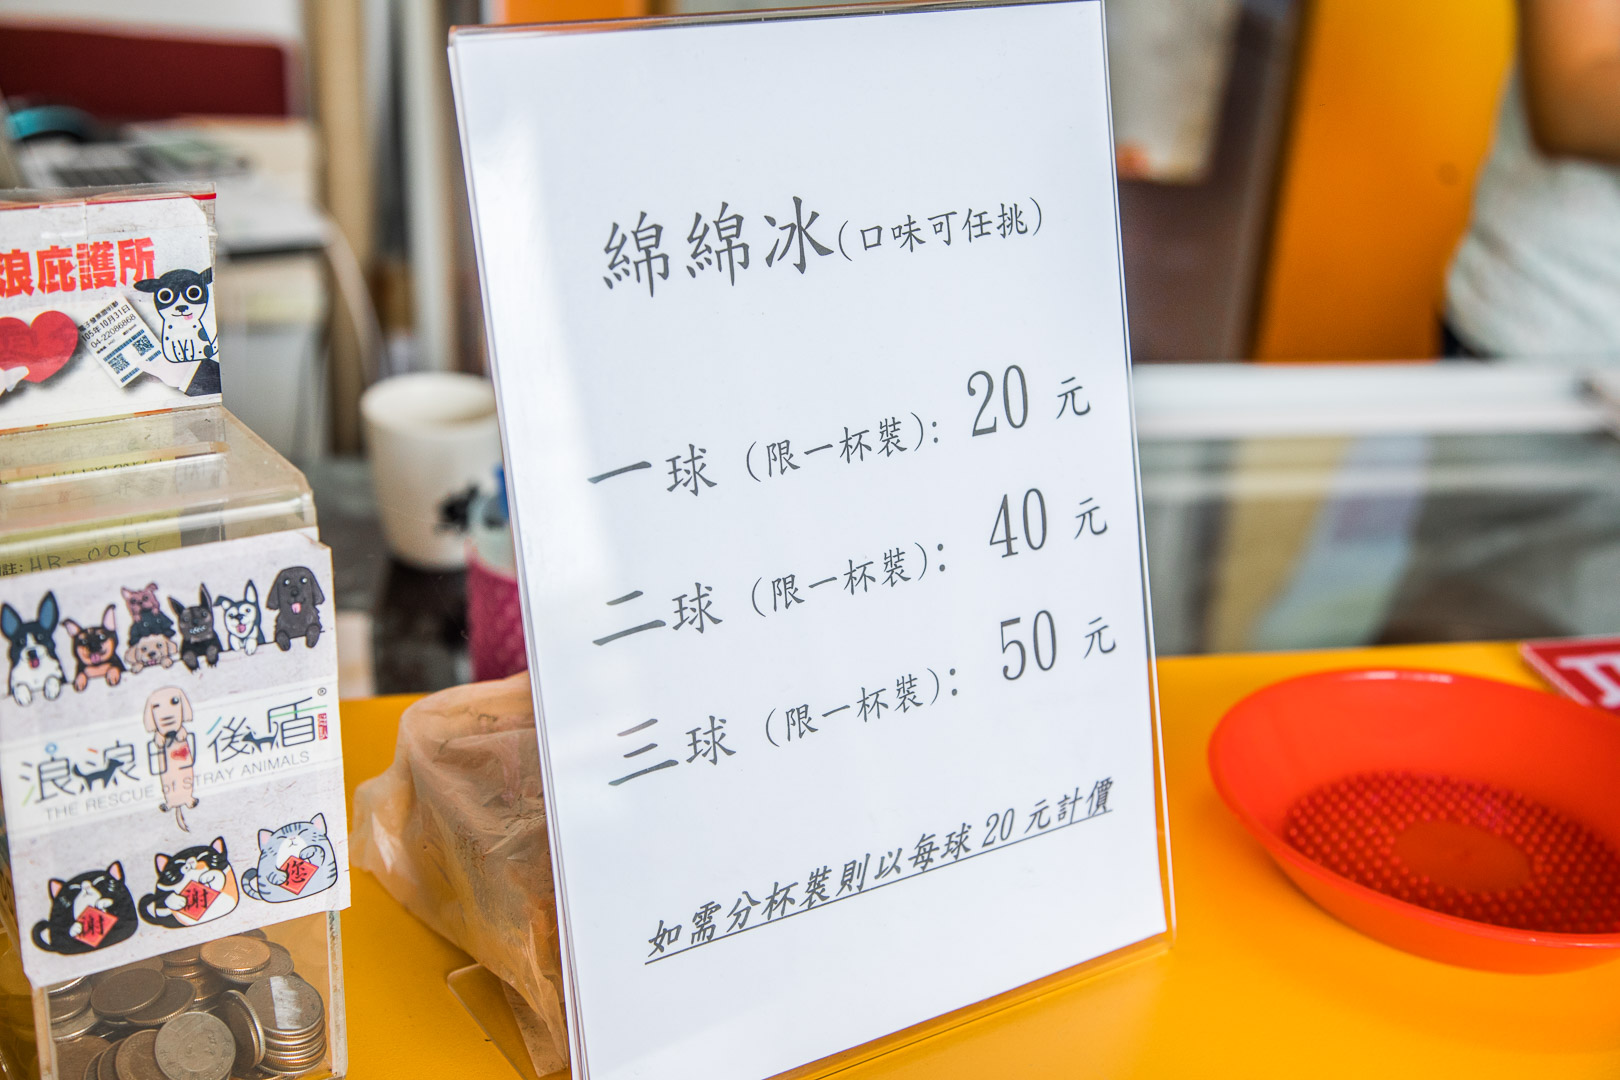 綿綿冰(口味可任挑)
一球 (限一杯裝): 20 元
二球 (限一杯裝): 40 元
三球 (限一杯裝): 50 元
如需分杯裝則以每球 20 元計價
浪庇護所
105年10月31日
04-22086868
HB-0055
浪浪的後盾®
THE RESCUE of STRAY ANIMALS
謝 謝 您